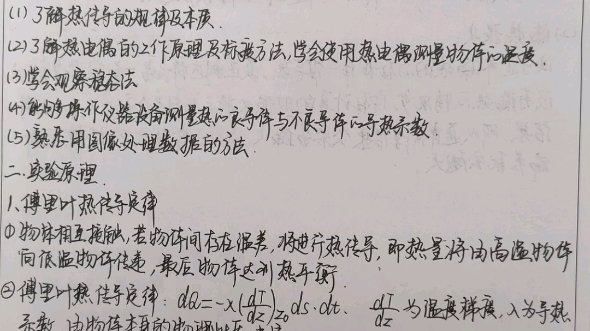 (1) 了解热传导的规律及本质.
(2) 了解热电偶的工作原理及标度方法,学会使用热电偶测量物体的温度.
(3) 学会观察稳态法
(4) 能够操作仪器设备测量热的良导体与不良导体的导热系数.
(5) 熟悉用图像处理数据的方法.
二.实验原理.
1.傅里叶热传导定律
① 物体相互接触,若物体间存在温差,将进行热传导,即热量将由高温物体
向低温物体传递,最后物体达到热平衡.
② 傅里叶热传导定律: dQ=-λ(dT/dz)z₀ ds·dt. dT/dz 为温度梯度,λ为导热
系数,由物体本身的物理性质